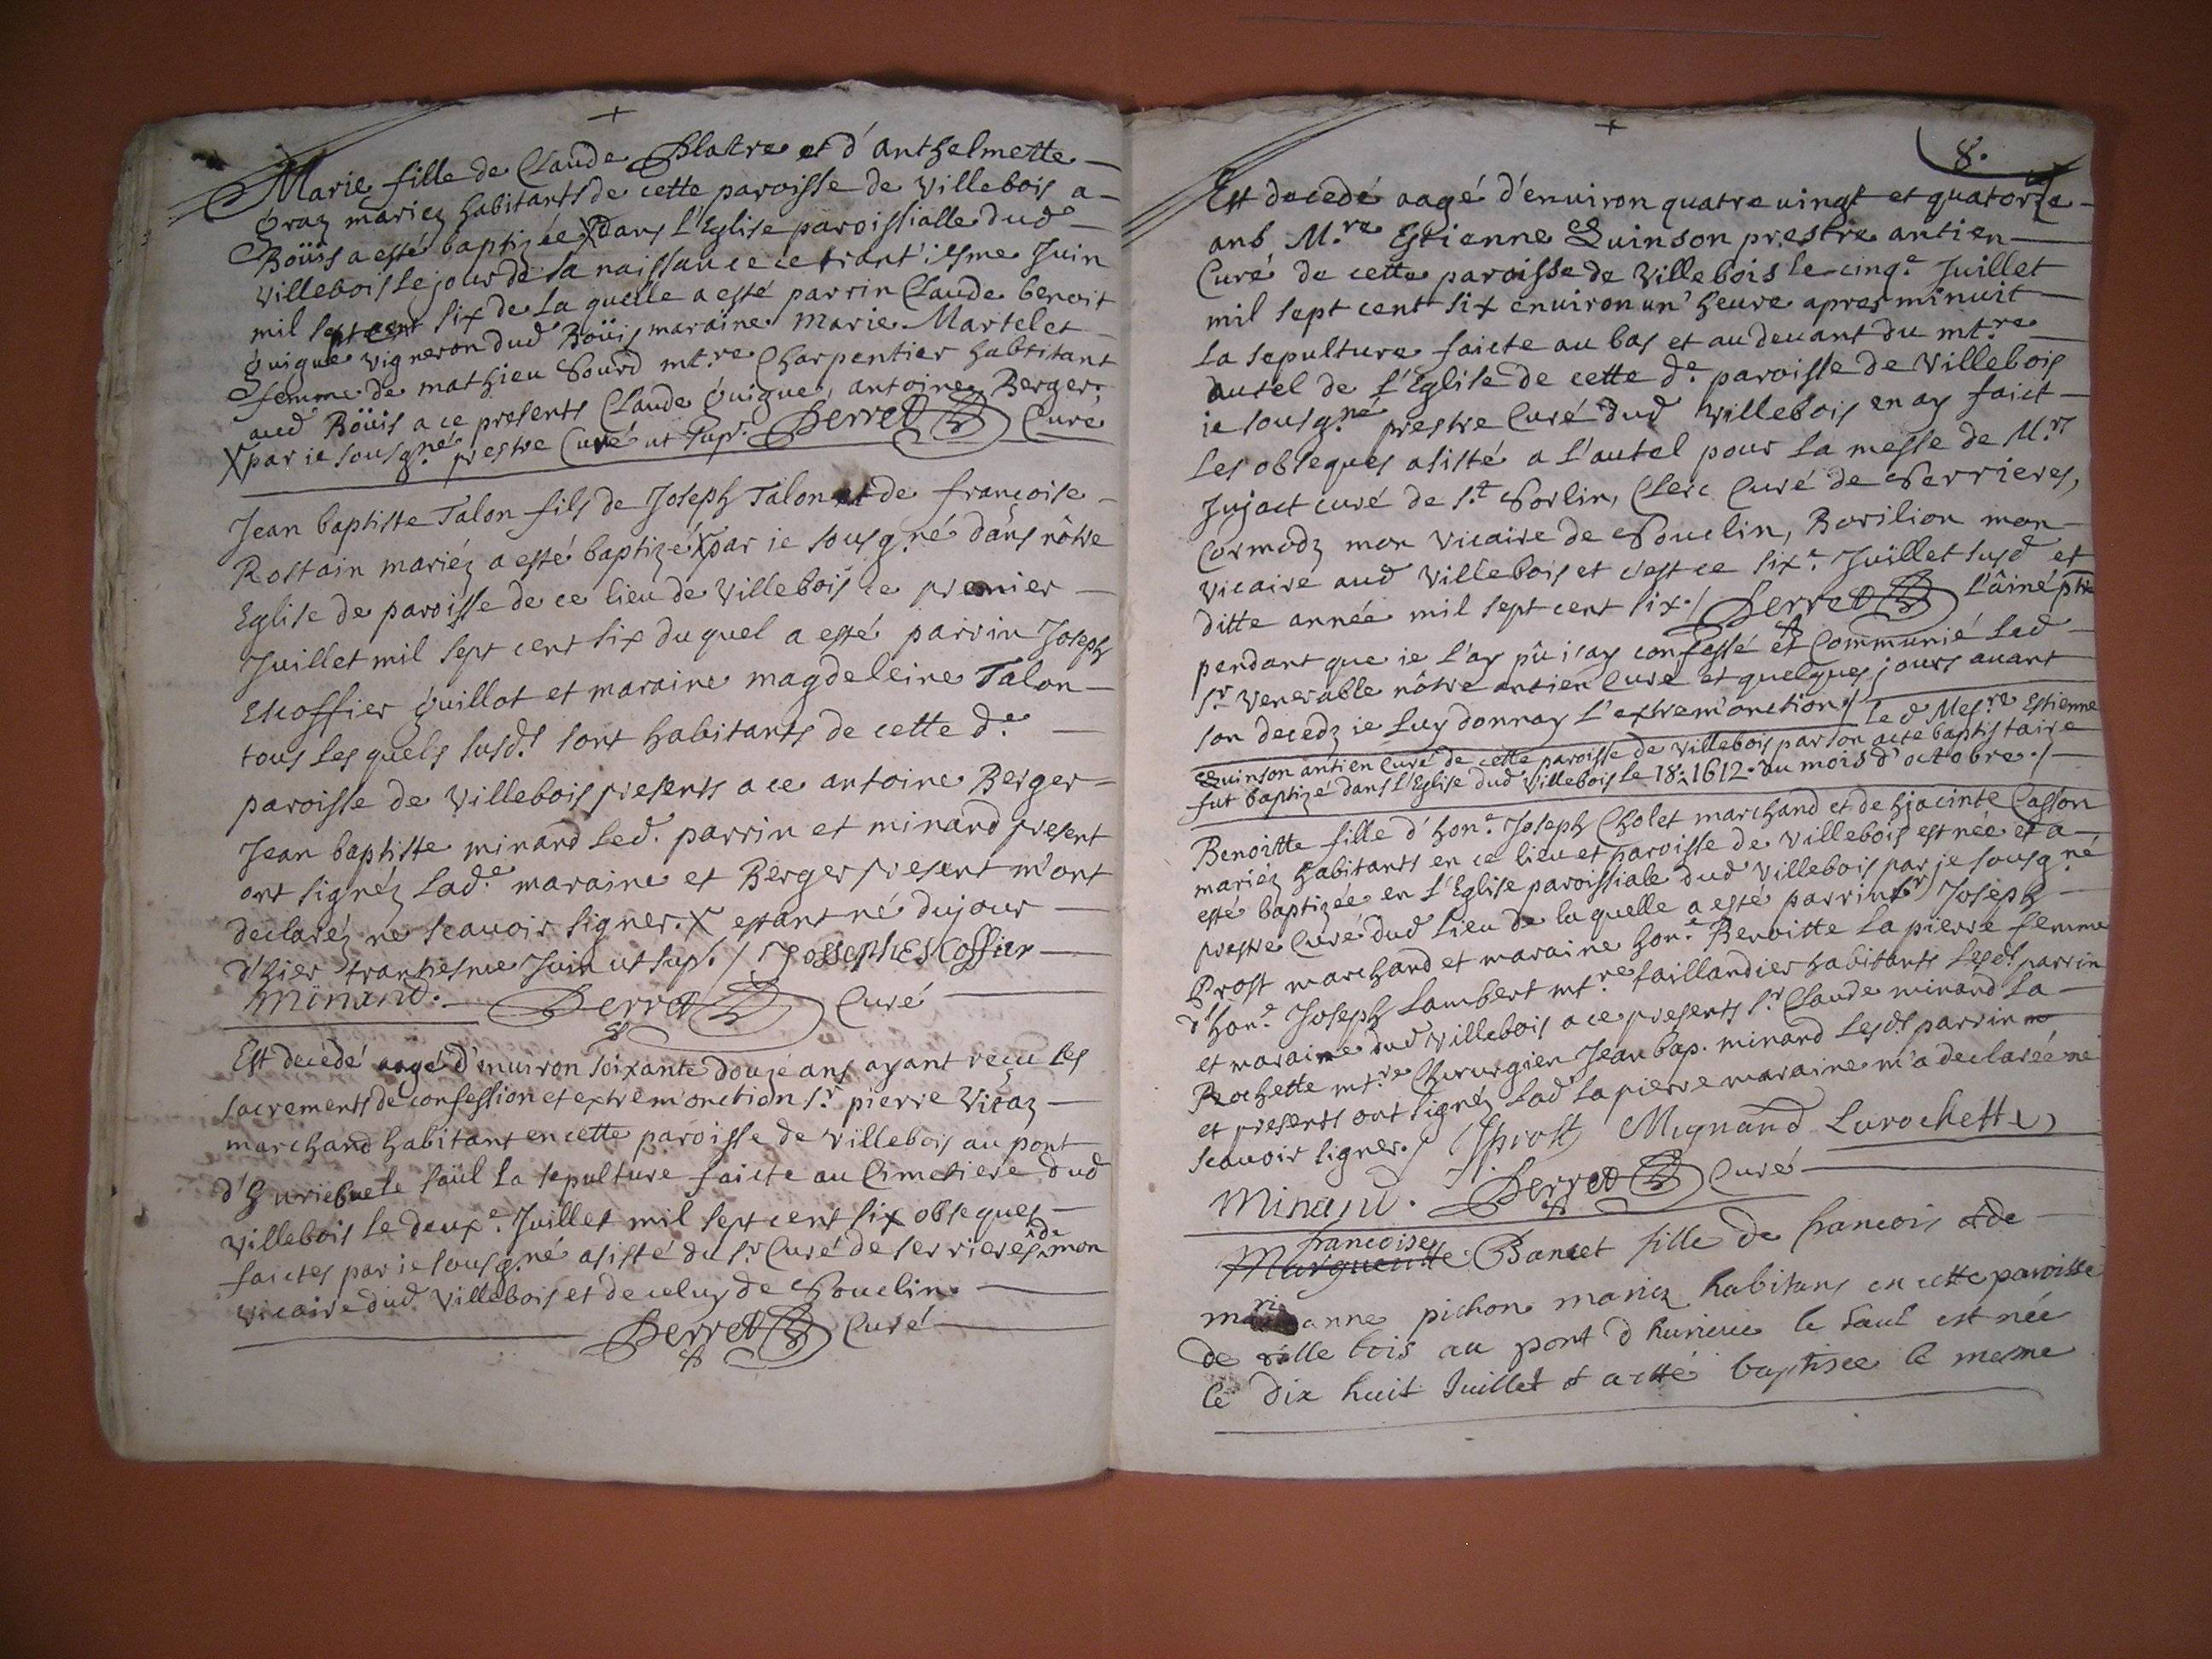 Marie fille de Claude Plastre et d'anthelmette
Graz mariez habitants de cette paroisse de villebois a
Boüis a esté baptizée X dans l'Eglise paroissialle dud
villebois le jour de sa naissance ce trant'iesme Juin
mil sept cent six de la quelle a esté parrin Claude benoit
guigue vigneron dud Boüis maraine marie Martelet
femme de mathieu Sourd mt.re Charpentier habitant
aud Boüis a ce presents Claude guigue, antoine Berger
X par ie sousg.né prestre Curé ut sup. Perret Curé
Jean baptiste Talon fils de Joseph Talon et de françoise
Rostain mariéz a esté baptizé X par ie sousg.né dans nôtre
Eglise de paroisse de ce lieu de villebois le premier
Juillet mil sept cent six du quel a esté parrin Joseph
Escoffier guillot et maraine magdeleine Talon
tous les quels susd.s sont habitants de cette d.e
paroisse de villebois presents a ce antoine Berger
Jean baptiste minard led. parrin et minard present
ont signéz lad.e maraine et Berger present m'ont
declaréz ne scavoir signer. X estant né du jour
d'hier trantiesme Juin ut sup. / JossephEscoffier
Minand. Perret Curé
Est decédé aagé d'enuiron soixante douze ans ayant reçu les
sacrements de confession et extrem'onction s.r pierre Vitaz
marchand habitant en cette paroisse de villebois au pont
d'huriebue le saül la sepulture faicte au Cimetiere dud
villebois le deux.e Juillet mil sept cent six obseques
faictes par ie sousg.né asisté du s.r Curé de serrieres de mon
vicaire dud. villebois et de celuy de Souclin
Perret Curé
8.
Est decedé aagé d'enuiron quatre uingt et quatorze
ans M.re Estienne Quinson prestre antien
Curé de cette paroisse de villebois le cinq.e Juillet
mil sept cent six enuiron un'heure apres minuit
la sepulture faicte au bas et au deuant du mt.re
autel de l'Eglise de cette d.e paroisse de villebois
ie sousg.né prestre Curé dud villebois en ay faict
les obseques asisté a l'autel pour la messe de M.rs
Jujact curé de s.t Sorlin, Clerc Curé de Serrieres,
Cormodz mon vicaire de Souclin, Borilion mon
vicaire aud villebois et c'est ce six.e Juillet susd et
ditte année mil sept cent six. / Perret L'âiné ptre
pendant que ie l'ay pû i'ay confessé et Communié led
s.r venerable nôtre antien Curé et quelques jours auant
son decedz ie luy donnay l'extrem'onction / le d Mes.re Estienne
Quinson antien Curé de cette paroisse de villebois par son acte baptistaire
fut baptizé dans l'Eglise dud villebois le 18. 1612. au mois d'octobre. /
Benoitte fille d'hon.e Joseph Cholet marchand et de hjacinte Casson
mariéz habitants en ce lieu et paroisse de villebois est née et a
esté baptizée en l'Eglise paroissiale dud villebois par je sousg.né
prestre Curé dud lieu de la quelle a esté parrin s.r Joseph
Prost marchand et maraine hon.e Benoitte la pierre femme
d'hon.e Joseph Lambert mt.re taillandier habitants lesd.s parrin
et maraine dud villebois a ce presents s.r Claude minard la
Rochette mt.re Chirurgien Jean bap. minard lesd.s parrin
et presents ont signéz lad lapierre maraine m'a declarée ne
scavoir signer. / JProst Mignand Larochette
Minand. Perret Curé
francoise
Marguerite Bancet fille de francois et de
marianne pichon mariez habitans en cette paroisse
de ville bois au pont d hurieue le saul est née
le dix huit Juillet et a etté baptisee le mesme